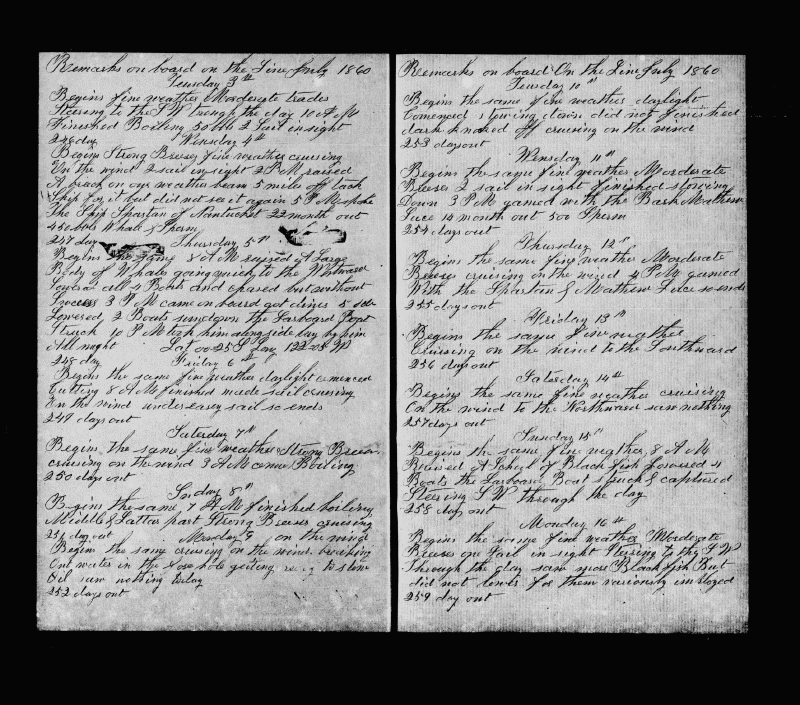 Remarks on board on the Line July 1860
Tuesday 3th
Begins fine weather Morderate trades
Steering to the SW through the day 10 AM
Finished Boiling 50 bbls 2 Sail in sight
246 day Wensday 4th
Begins Strong Breeses fine weather cruising
On the wind 2 sail in sight 2 PM raised
A breach on our weather beam 5 miles off tack
Ship for it but did not see it again 5 PM spoke
The Ship Spartan of Nantucket 22 month out
450 bbls Whale & Sperm
247 day Thursday 5th
Begins the same 8 AM raised A Large
Body of Whales going quick to the Westward
Lowered all 4 Boats and chased but without
Success 3 PM came on board got diner 5
Lowered 2 Boats sundown the Larboard Boat
Struck 10 PM took him alongside lay by him
All night Lat 00 25 S Long 122 W
248 day Friday 6th
Begins the same fine weather daylight comenced
Cutting 8 AM finished made sail cruising
On the wind under easey sail so ends
249 days out
Saterday 7th
Begins the same fine weather Strong Breeses
cruising on the wind 3 AM comc Boiling
250 days out
Sunday 8th
Begins the same 7 AM finished boiling
Middle & Latter part Strong Breeses cruising
251 day out Monday 9 on the wind
Begins the same cruising on the wind breaking
Out water in the fore hole geting ready to stow
Oil saw nothing today
252 days out
Remarks on board On the Line July 1860
Teusday 10th
Begins the same fine weather daylight
Comenced stowing down did not finished
dark knoked off cruising on the wind
253 days out
Wensday 11th
Begins the same fine weather Morderate
Breeses 2 sail in sight finished stowing
Down 3 PM gamed with the Bark Mathew
Luce 14 month out 500 Sperm
254 days out
Thursday 12th
Begins the same fine weather Morderate
Breeses cruising on the wind 4 PM gamed
With the Spartan & Mathew Luce so ends
255 days out
Friday 13th
Begins the same fine weather
Cruising on the wind to the Southward
256 days out
Saterday 14th
Begins the same fine weather cruising
On the wind to the Northward saw nothing
257 days out
Sunday 15th
Begins the same fine weather 8 AM
Raised A School of Black fish Lowered 4
Boats the Larboard Boat struck & captured
Steering SW through the day
258 days out
Monday 16th
Begins the same fine weather Morderate
Breeses on Sail in sight Stering to the SW
Through the day saw more Black fish But
did not lower for them variously imployed
259 day out